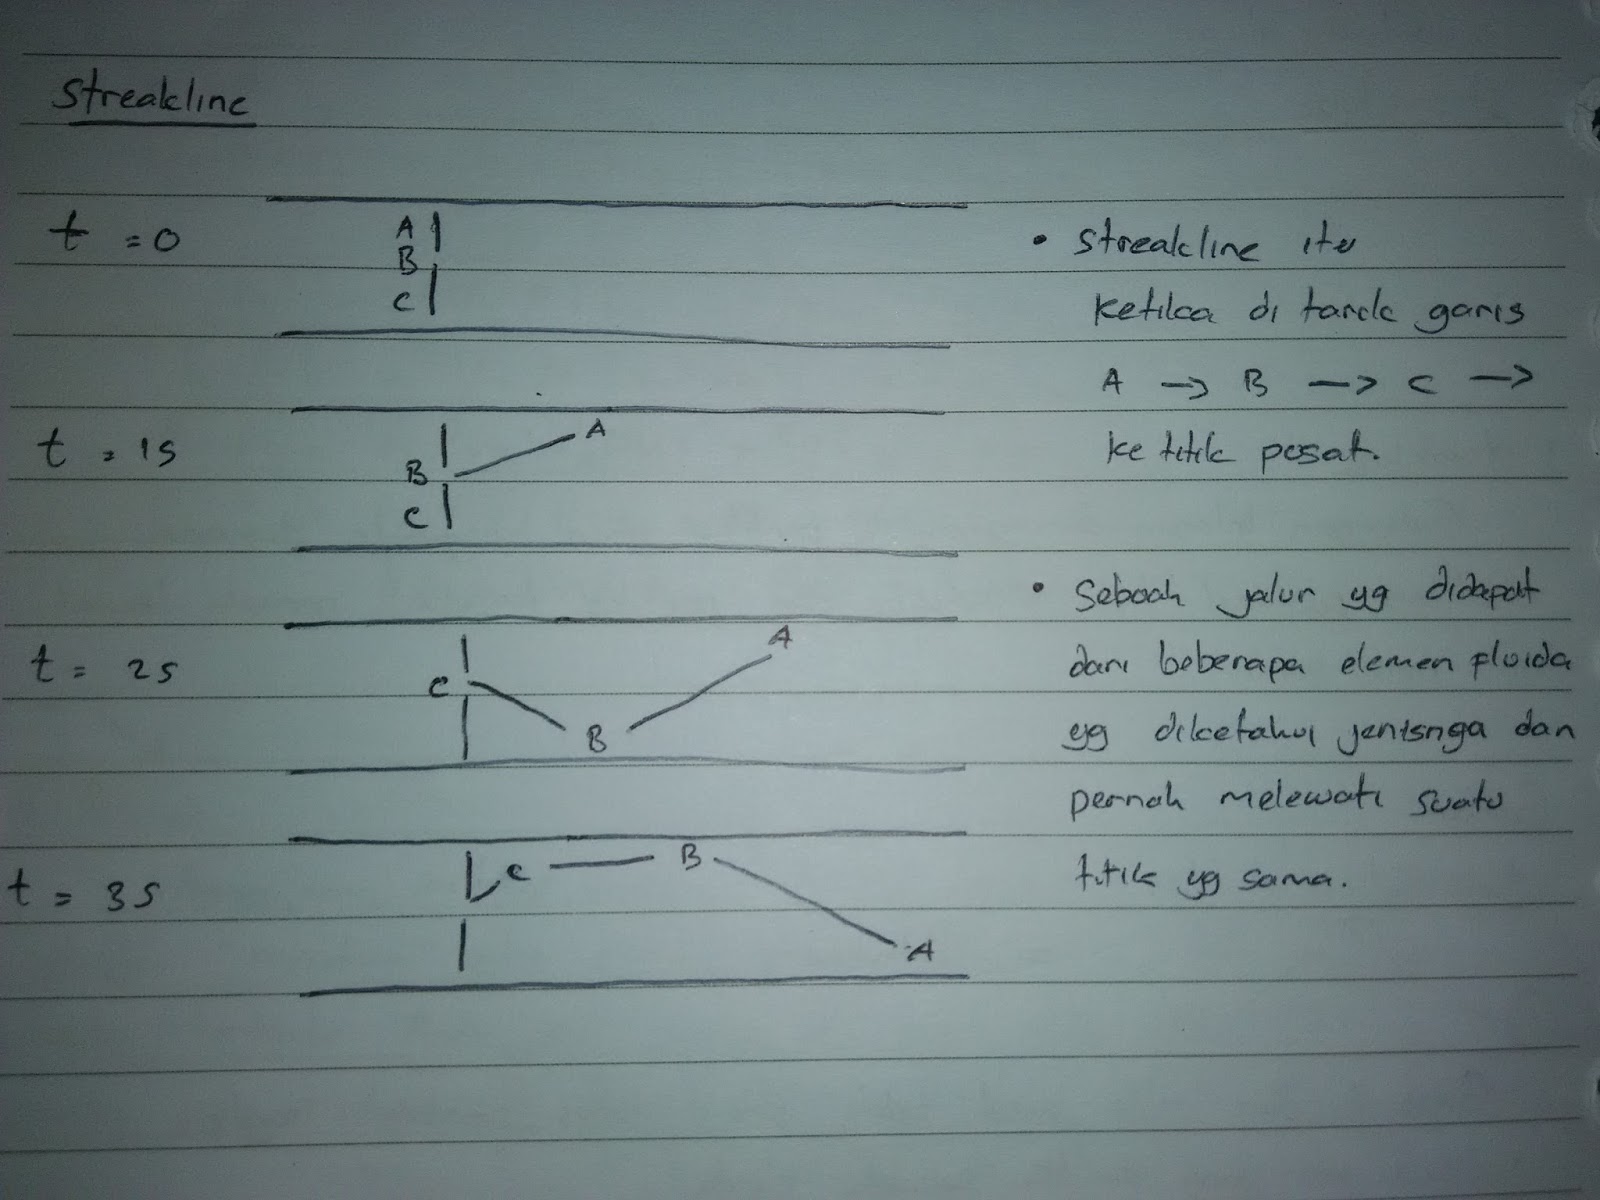 Streakline
t = 0
A
B
C
• Streakline itu
ketika di tarik garis
A → B → C →
ke titik pusat.
t = 1s
A
B
C
• Sebuah jalur yg didapat
dari beberapa elemen fluida
yg diketahui jenisnya dan
pernah melewati suatu
titik yg sama.
t = 2s
A
C
B
t = 3s
C
B
A